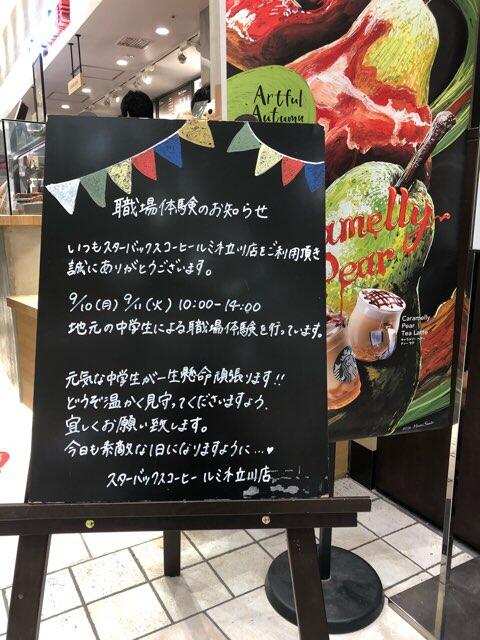 職場体験のお知らせ
いつもスターバックスコーヒールミネ立川店をご利用頂き
誠にありがとうございます。
9/10(月) 9/11(火) 10:00-14:00
地元の中学生による職場体験を行っています。
元気な中学生が一生懸命頑張ります!!
どうぞ温かく見守ってくださいますよう、
宜しくお願い致します。
今日も素敵な1日になりますように…♥
スターバックスコーヒー ルミネ立川店
Artful
Autumn
amelly
Pear
Caramelly
Pear
Tea Latte